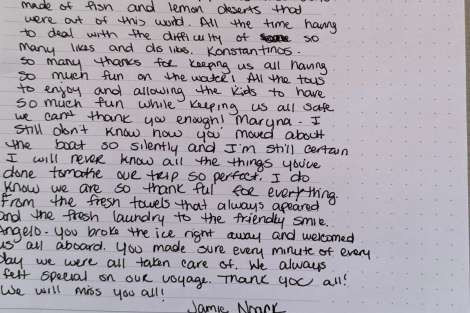 made of fish and lemon deserts that
were out of this world. All the time having
to deal with the difficulty of so
many likes and dislikes. Konstantinos.
So many thanks for keeping us all having
so much fun on the water! All the toys
to enjoy and allowing the kids to have
so much fun while keeping us all safe
we cant thank you enough! Maryna. I
still don't know how you moved about
the boat so silently and I'm still certain
I will never know all the things you've
done tomake our trip so perfect. I do
know we are so thankful for everything.
From the fresh towels that always apeared
and the fresh laundry to the friendly smile.
Angelo. You broke the ice right away and welcomed
us all aboard. You made sure every minute of every
day we were all taken care of. We always
felt special on our voyage. Thank you all!
We will miss you all!
Jamie